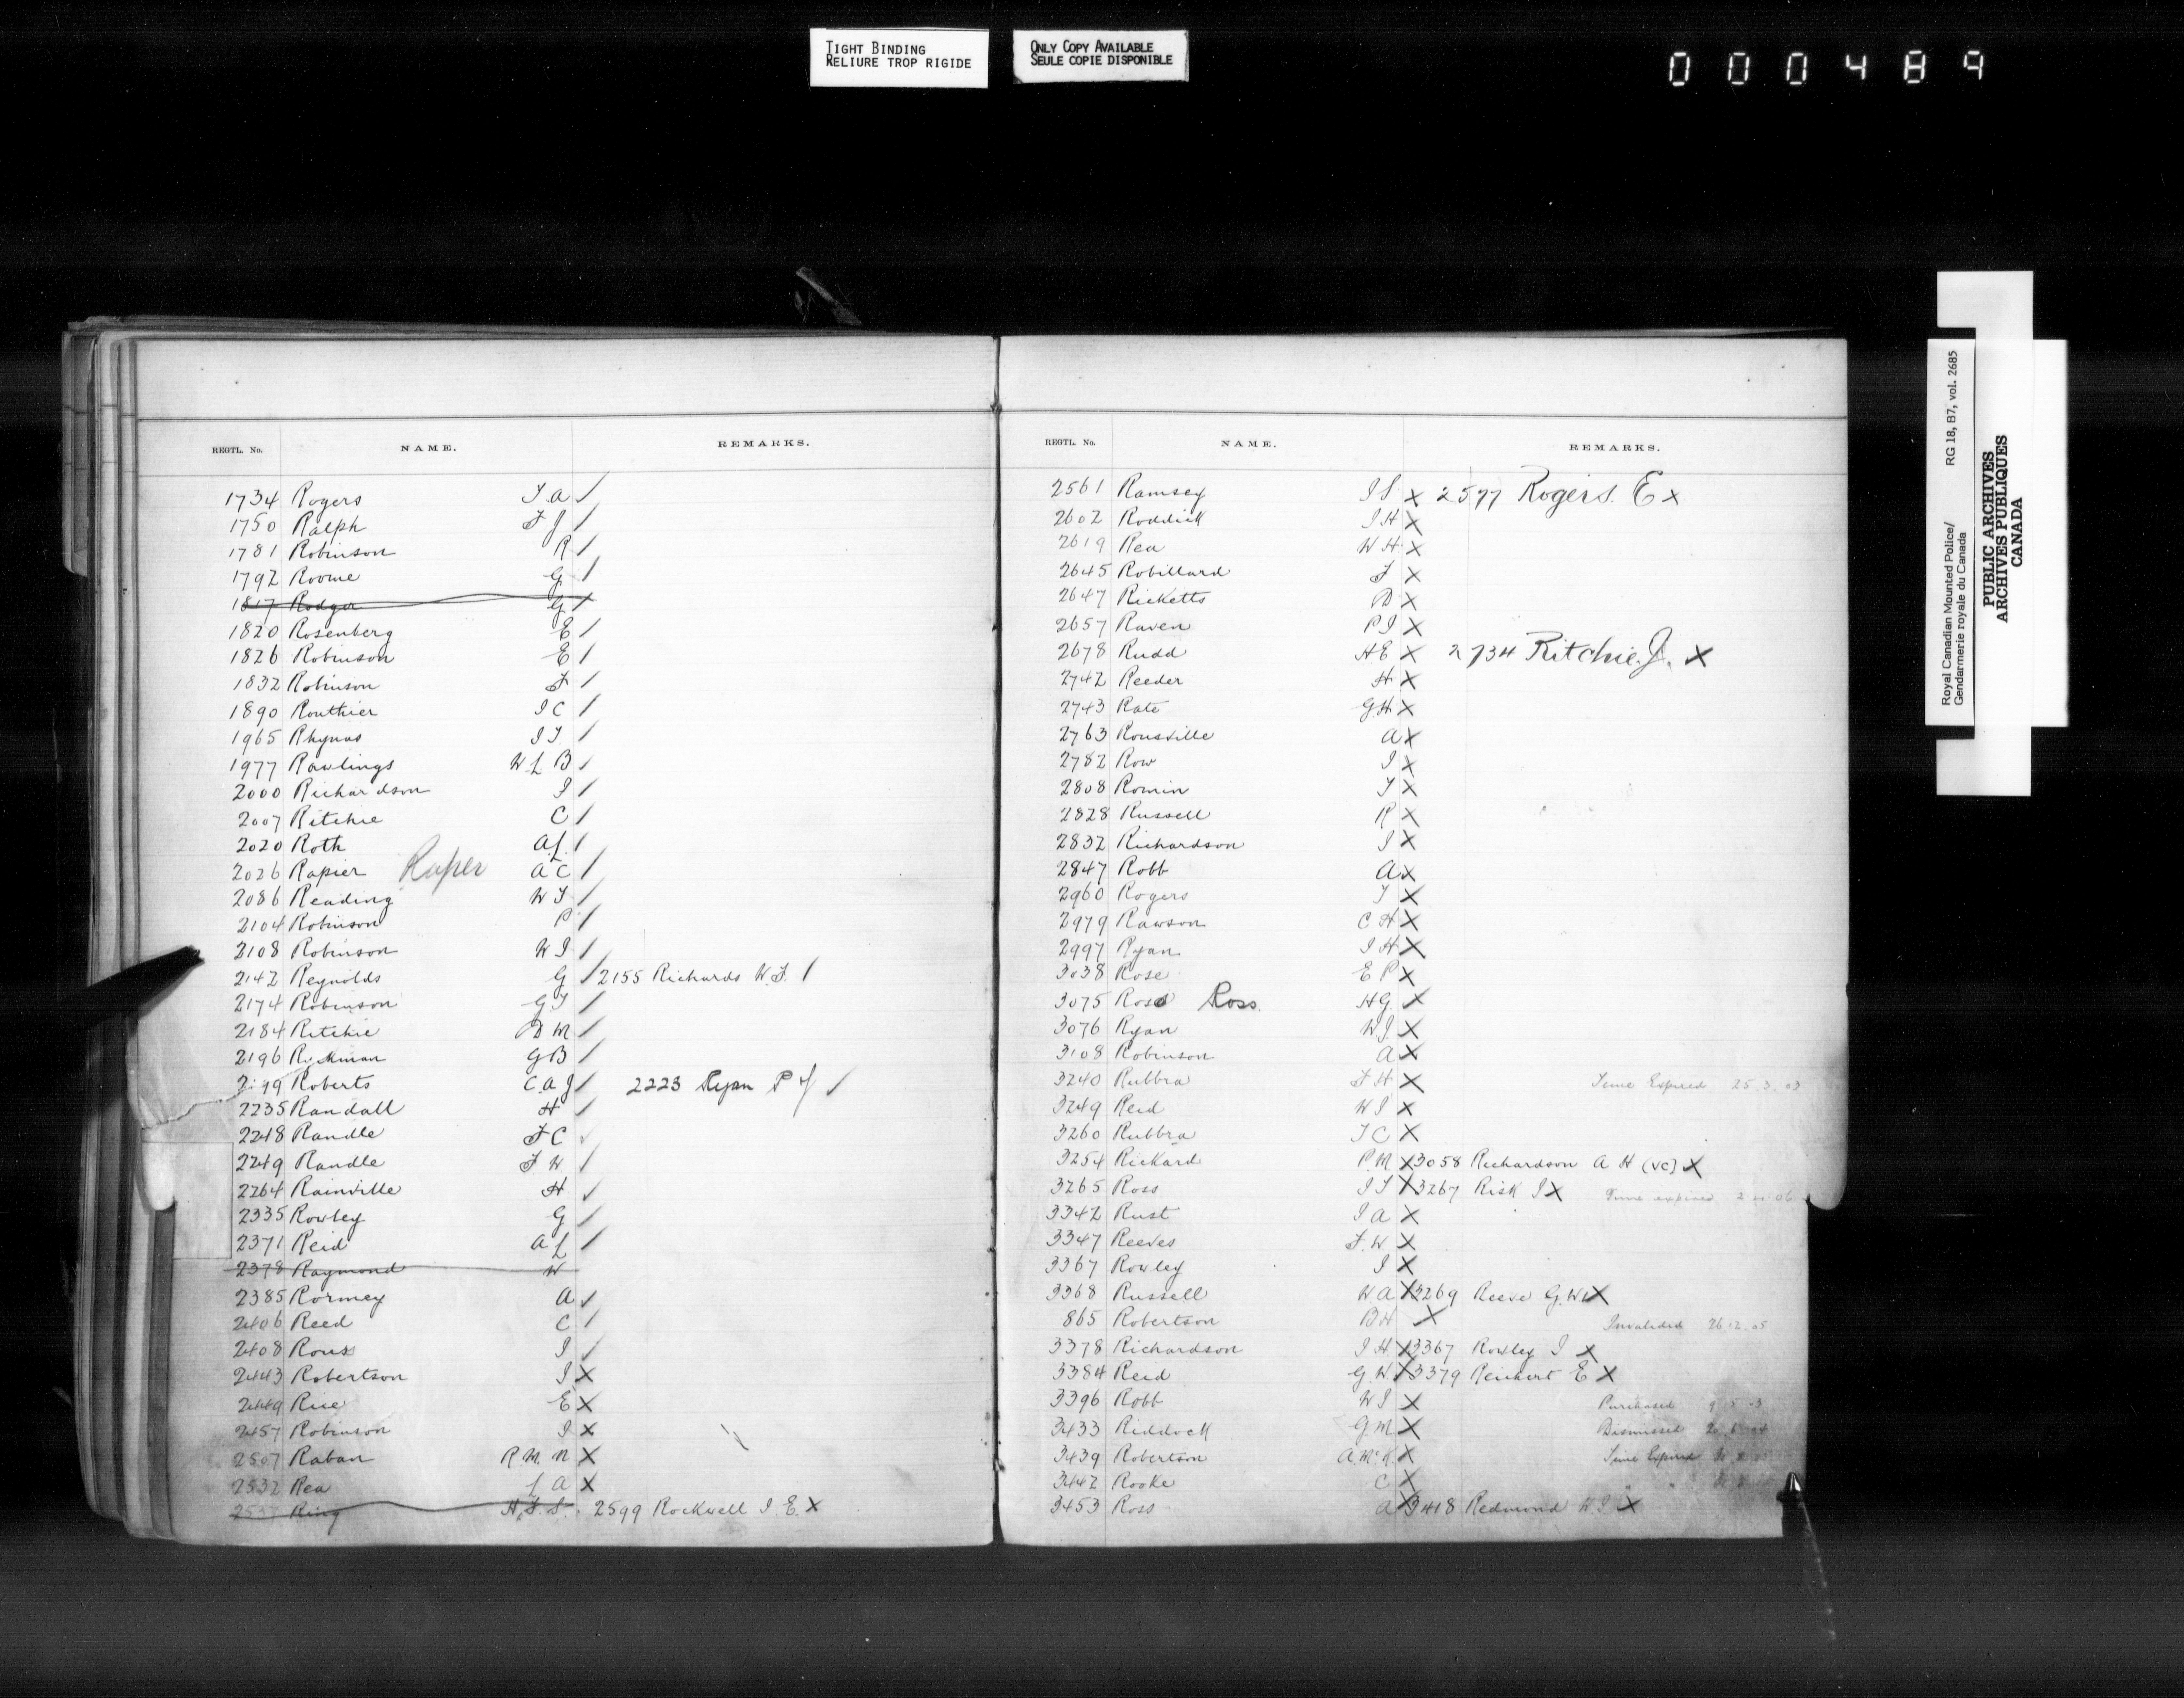 TIGHT BINDING
RELIURE TROP RIGIDE
ONLY COPY AVAILABLE
SEULE COPIE DISPONIBLE
000489
REGTL. No. NAME. REMARKS.
1734 Rogers T.A /
1750 Ralph F J /
1781 Robinson R /
1792 Roome G /
1817 Rodger G /
1820 Rosenberg E /
1826 Robinson E /
1832 Robinson F /
1890 Routhier J C /
1965 Rhynas J T /
1977 Rawlings W L B /
2000 Richardson J /
2007 Ritchie C /
2020 Roth A L /
2026 Rapier Raper A C /
2086 Reading W T /
2104 Robinson P /
2108 Robinson W J /
2142 Reynolds G / 2155 Richards W. F. /
2174 Robinson G T /
2184 Ritchie D M /
2196 Ryckman G B /
2199 Roberts C. A J / 2223 Ryan P J /
2235 Randall H /
2248 Randle F C /
2249 Randle F W /
2264 Rainville H /
2335 Rowley G /
2371 Reid A L /
2378 Raymond W
2385 Rormey A /
2406 Reed C /
2408 Rouss J /
2443 Robertson J X
2449 Rice E X
2457 Robinson J X
2507 Raban R. M. N X
2532 Rea L A X
Ring H. F. S. 2599 Rockwell J. E X
REGTL. No. NAME. REMARKS.
2561 Ramsey J S X 2577 Rogers. E X
2602 Roddick J H X
2619 Rea W H X
2645 Robillard F X
2647 Ricketts D X
2657 Raven P J X
2678 Rudd H E X 2734 Ritchie. J. X
2742 Reeder H X
2743 Rate G. H X
2763 Rousville A X
2782 Row J X
2808 Romin T X
2828 Russell R X
2832 Richardson J X
2847 Robb A X
2960 Rogers T X
2979 Rawson C H X
2997 Ryan J H X
3038 Rose E P X
3075 Ross Ross. H G. X
3076 Ryan W J. X
3108 Robinson A X
3240 Rubbra F H X Time Expired 25.3.03
3249 Reid W J X
3260 Rubbra T C X
3254 Rickard P. M X 3058 Richardson A H (VC) X
3265 Ross J T X 3267 Risk J X Time expired
3342 Rust J A X
3347 Reeves F. W. X
3367 Rowley J X
3368 Russell W A X 3269 Reeve G. W X
865 Robertson B H X Invalided 26.12.05
3378 Richardson J H. X 3367 Rowley J X
3384 Reid G. W X 3379 Reichert E X
3396 Robb W J X Purchased
3433 Riddock G M X Dismissed
3439 Robertson A. Mc. K. X Time Expired
3442 Rooke C X
3453 Ross A X 3418 Redmond W J X
Royal Canadian Mounted Police/
Gendarmerie royale du Canada
RG 18, B7, vol. 2685
PUBLIC ARCHIVES
ARCHIVES PUBLIQUES
CANADA